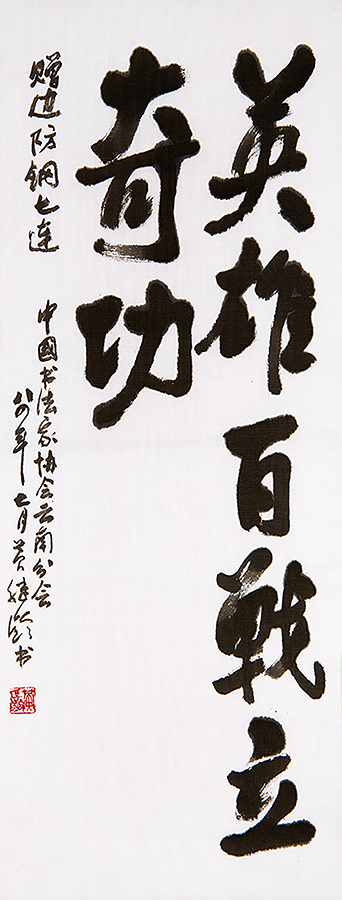 英雄百戰立
奇功
赠边防鋼七连
中國书法家协会云南分会
八四年七月黄继龄书